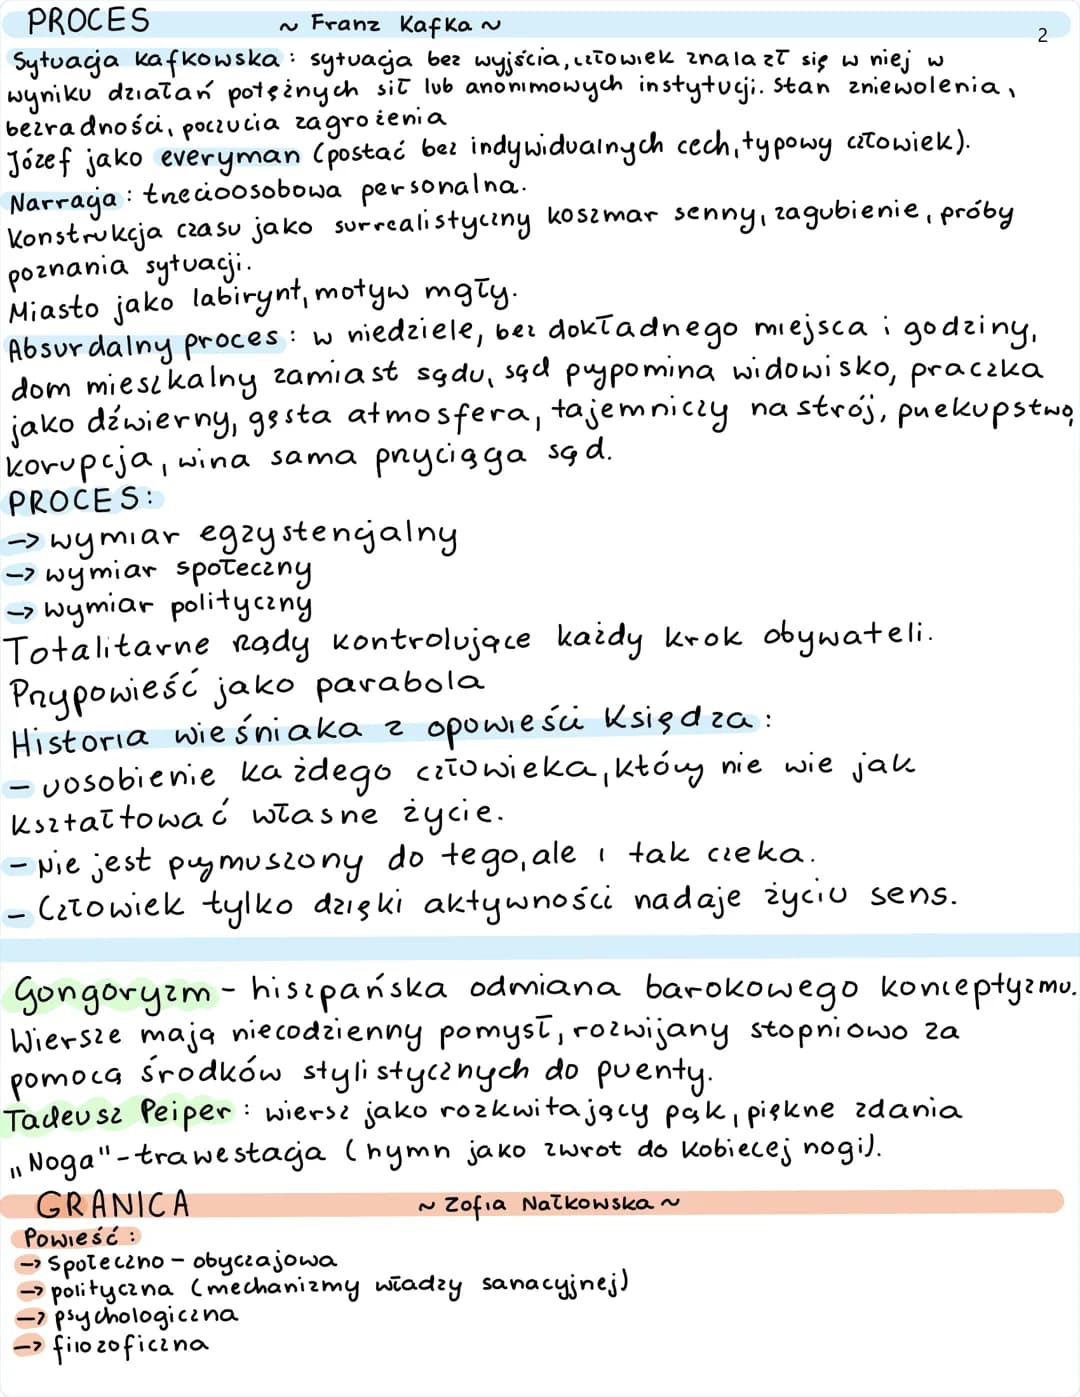 PROCES ~ Franz Kafka ~
2
Sytuacja kafkowska: sytuacja bez wyjścia, człowiek znalazł się w niej w
wyniku działań potężnych sił lub anonimowych instytucji. Stan zniewolenia,
bezradności, poczucia zagrożenia
Józef jako everyman (postać bez indywidualnych cech, typowy człowiek).
Narracja: trzecioosobowa personalna.
Konstrukcja czasu jako surrealistyczny koszmar senny, zagubienie, próby
poznania sytuacji.
Miasto jako labirynt, motyw mgły.
Absurdalny proces: w niedziele, bez dokładnego miejsca i godziny,
dom mieszkalny zamiast sądu, sąd przypomina widowisko, praczka
jako dźwierny, gęsta atmosfera, tajemniczy nastrój, przekupstwo,
korupcja, wina sama przyciąga sąd.
PROCES:
-> wymiar egzystencjalny
-> wymiar społeczny
-> wymiar polityczny
Totalitarne rządy kontrolujące każdy krok obywateli.
Przypowieść jako parabola
Historia wieśniaka z opowieści Księdza:
- uosobienie każdego człowieka, który nie wie jak
kształtować własne życie.
- Nie jest przymuszony do tego, ale i tak czeka.
- Człowiek tylko dzięki aktywności nadaje życiu sens.
Gongoryzm - hiszpańska odmiana barokowego konceptyzmu.
Wiersze mają niecodzienny pomysł, rozwijany stopniowo za
pomocą środków stylistycznych do puenty.
Tadeusz Peiper: wiersz jako rozkwitający pąk, piękne zdania
„Noga" - trawestacja (hymn jako zwrot do kobiecej nogi).
GRANICA ~ Zofia Nałkowska ~
Powieść:
-> Społeczno - obyczajowa
-> polityczna (mechanizmy władzy sanacyjnej)
-> psychologiczna
-> filozoficzna